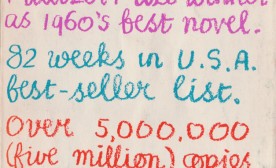 as 1960's best novel.
82 weeks in U.S.A.
best-seller list.
Over 5,000,000
(five million) copies